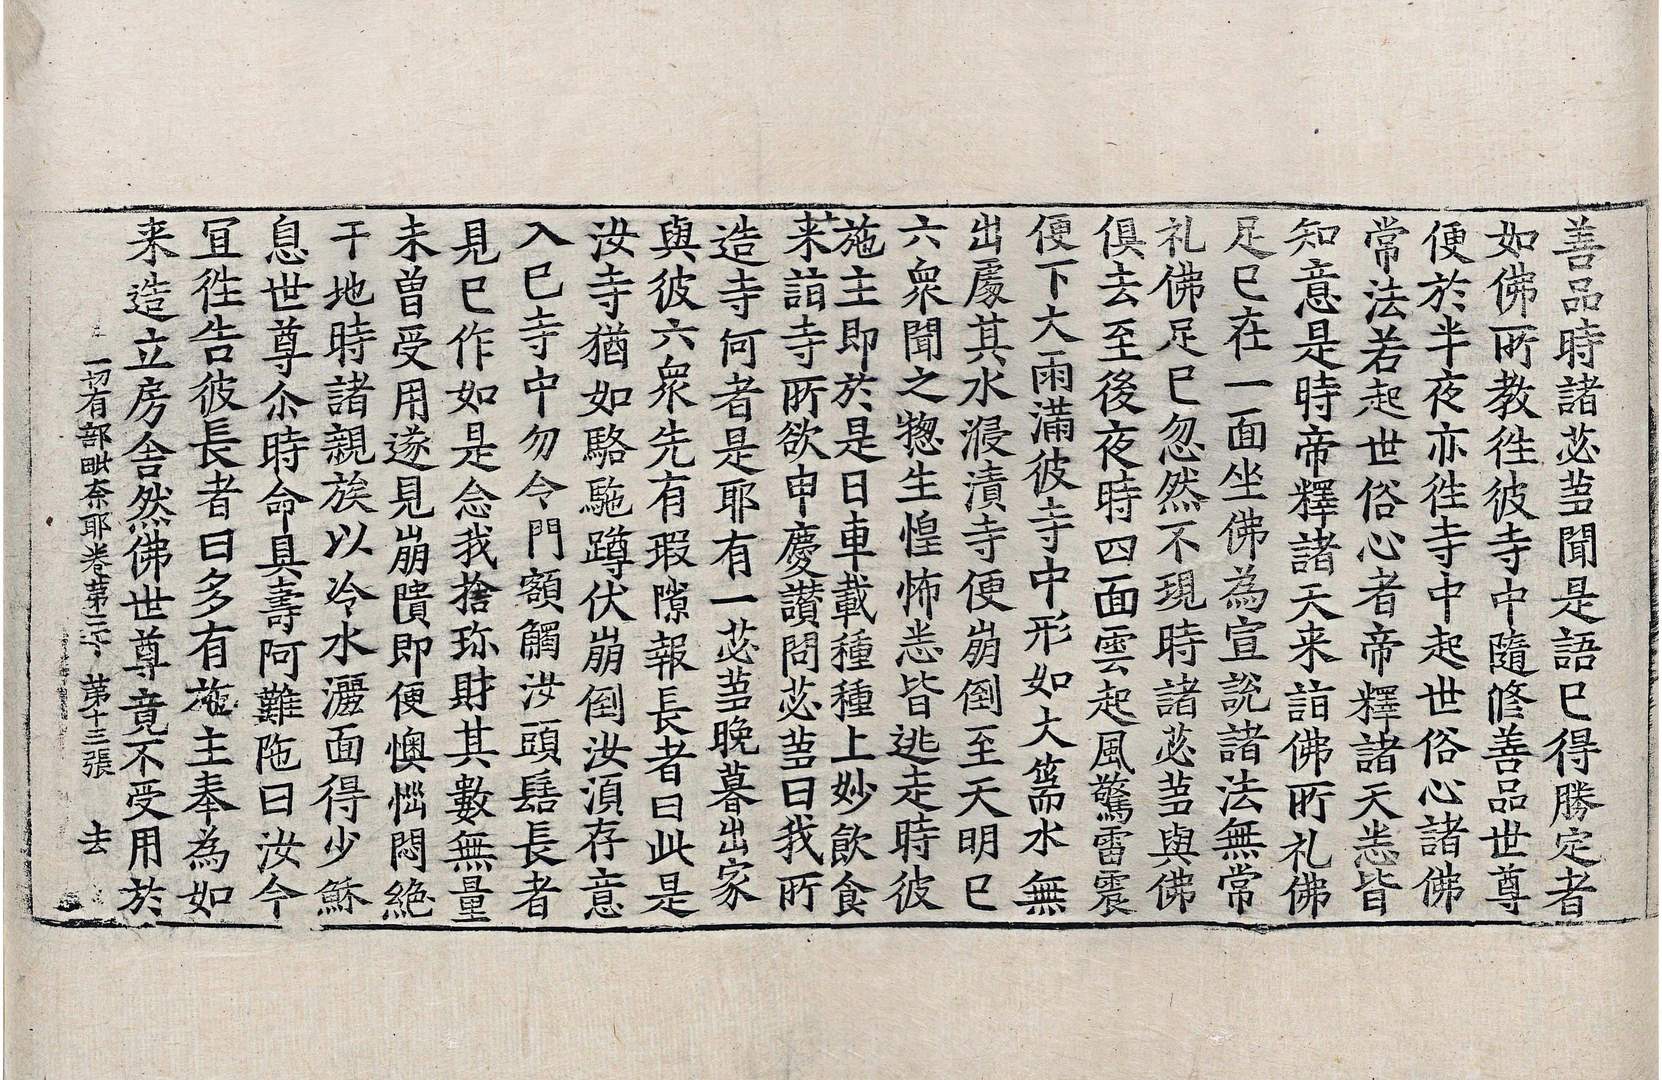 善品時諸苾蒭聞是語已得勝定者
如佛所教往彼寺中隨修善品世尊
便於半夜亦往寺中起世俗心諸佛
常法若起世俗心者帝釋諸天悉皆
知意是時帝釋諸天来詣佛所礼佛
足已在一面坐佛為宣說諸法無常
礼佛足已忽然不現時諸苾蒭與佛
俱去至後夜時四面雲起風驚雷震
便下大雨滿彼寺中形如大篅水無
出處其水浸漬寺便崩倒至天明已
六衆聞之惣生惶怖悉皆逃走時彼
施主即於是日車載種種上妙飲食
来詣寺所欲申慶讃問苾蒭曰我所
造寺何者是耶有一苾蒭晚暮出家
與彼六衆先有瑕隙報長者曰此是
汝寺猶如駱駞蹲伏崩倒汝須存意
入已寺中勿令門額觸汝頭髻長者
見已作如是念我捨珎財其數無量
未曽受用遂見崩隤即便懊惱悶絶
于地時諸親族以冷水灑面得少穌
息世尊尒時命具壽阿難陁曰汝今
冝往告彼長者曰多有施主奉為如
来造立房舍然佛世尊竟不受用於
一切有部毗奈耶卷第三十 第十三張 去